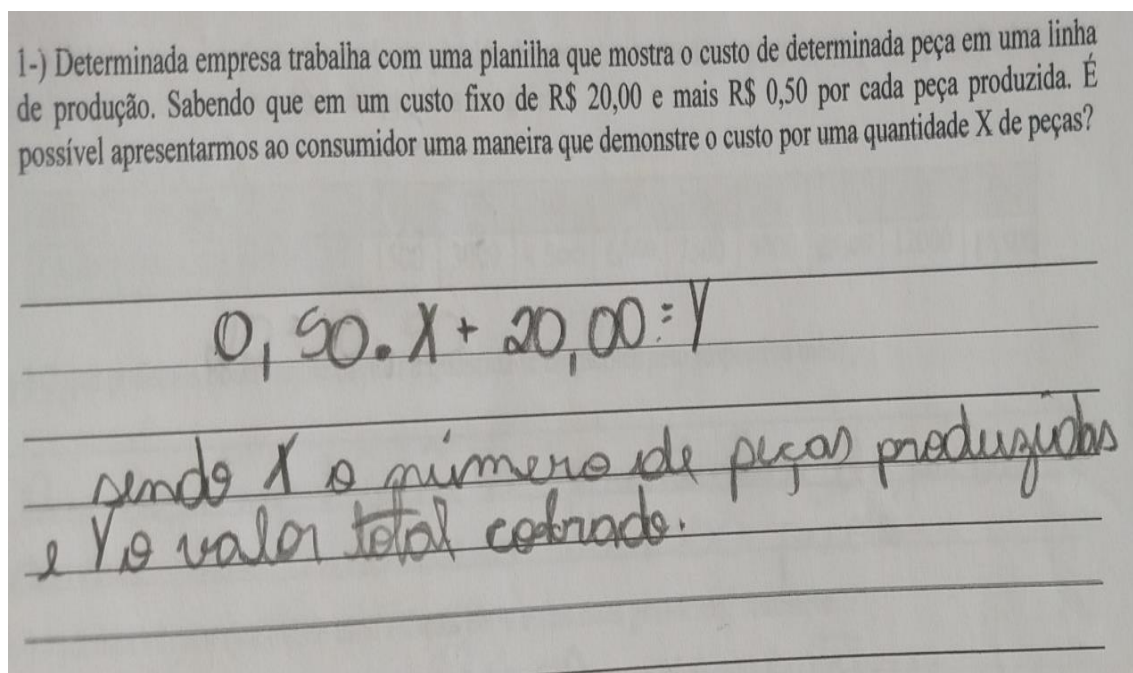 1-) Determinada empresa trabalha com uma planilha que mostra o custo de determinada peça em uma linha
de produção. Sabendo que em um custo fixo de R$ 20,00 e mais R$ 0,50 por cada peça produzida. É
possível apresentarmos ao consumidor uma maneira que demonstre o custo por uma quantidade X de peças?
0,50.X + 20,00 = Y
sendo X o número de peças produzidas
e Y o valor total cobrado.